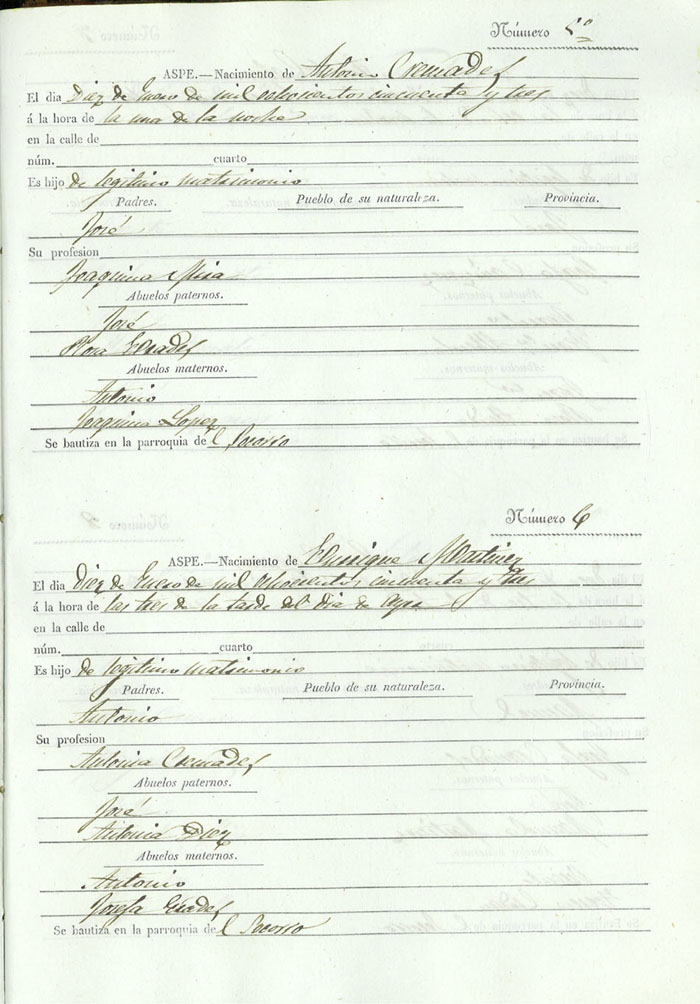 Número 5º
ASPE.—Nacimiento de Antonio Cremades
El dia Diez de Enero de mil ochocientos cincuenta y tres
á la hora de la una de la noche
en la calle de
núm. cuarto
Es hijo de legitimo matrimonio
Padres. Pueblo de su naturaleza. Provincia.
José
Su profesion
Joaquina Mira
Abuelos paternos.
José
Rosa
Abuelos maternos.
Antonio
Joaquina Lopez
Se bautiza en la parroquia del Socorro
Número 6
ASPE.—Nacimiento de Enrrique Martinez
El dia Diez de Enero de mil ochocientos cincuenta y tres
á la hora de las tres de la tarde del dia de ayer
en la calle de
núm. cuarto
Es hijo de legitimo matrimonio
Padres. Pueblo de su naturaleza. Provincia.
Antonio
Su profesion
Antonia Cremades
Abuelos paternos.
José
Antonia Diez
Abuelos maternos.
Antonio
Josefa
Se bautiza en la parroquia del Socorro